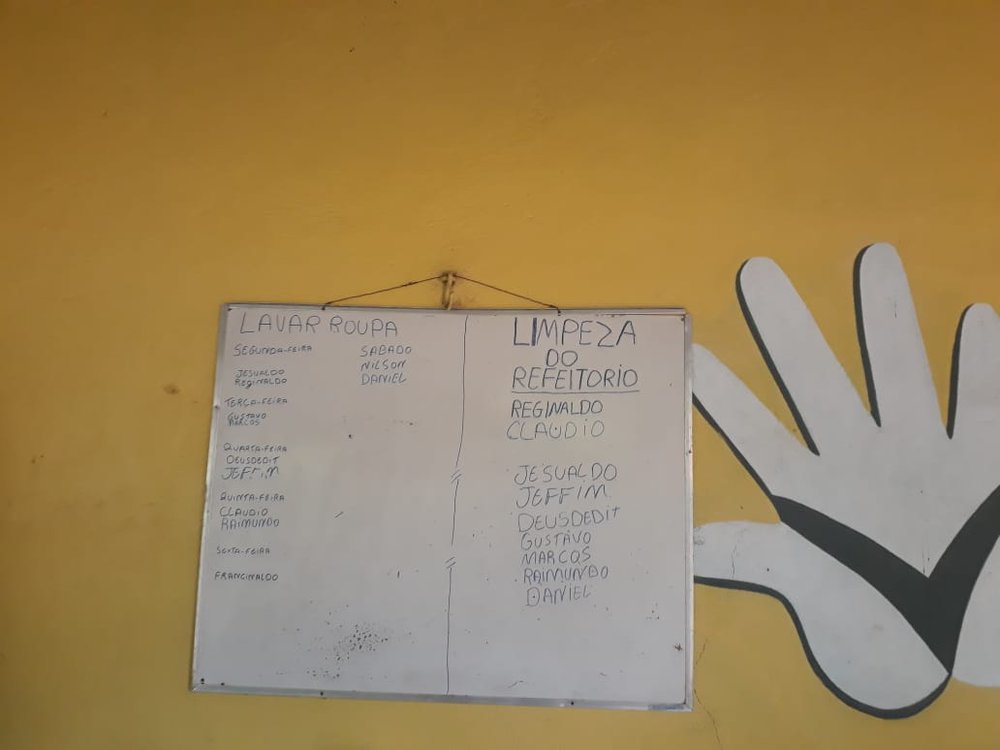 LAVAR ROUPA
SEGUNDA-FEIRA
JESUALDO
REGINALDO
TERÇA-FEIRA
GUSTAVO
MARCOS
QUARTA-FEIRA
DEUSDEDIT
JEFFIM
QUINTA-FEIRA
CLAUDIO
RAIMUNDO
SEXTA-FEIRA
FRANGINALDO
SABADO
NILSON
DANIEL
LIMPEZA
DO
REFEITORIO
REGINALDO
CLAUDiO
JESUALDO
JEFFIM
DEUSDEDIT
GUSTAVO
MARCOS
RAIMUNDO
DANIEL